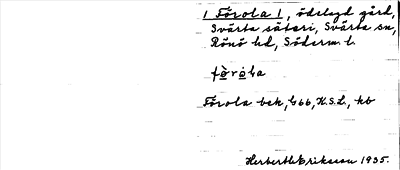 1 Förola 1, ödelagd gård,
Svärta säteri, Svärta sn,
Rönö hd, Söderm. l.
fö̀ròla
Förola bek, G66, K.S.L., kb
Herbert Eriksson 1935.